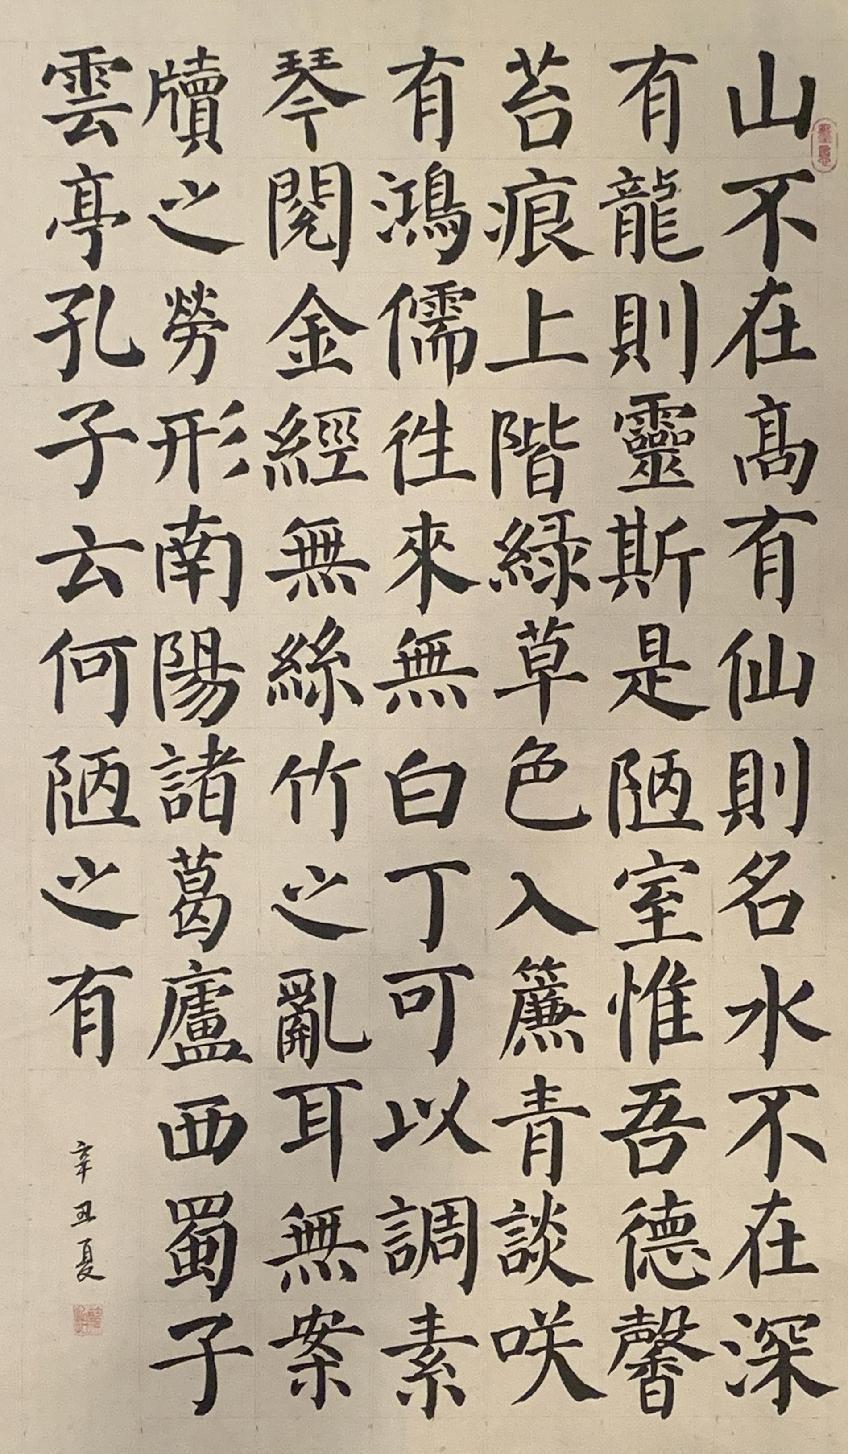 山不在高有仙則名水不在深
有龍則靈斯是陋室惟吾德馨
苔痕上階緑草色入簾青談咲
有鴻儒往來無白丁可以調素
琴閱金經無絲竹之亂耳無案
牘之勞形南陽諸葛廬西蜀子
雲亭孔子云何陋之有
辛丑夏